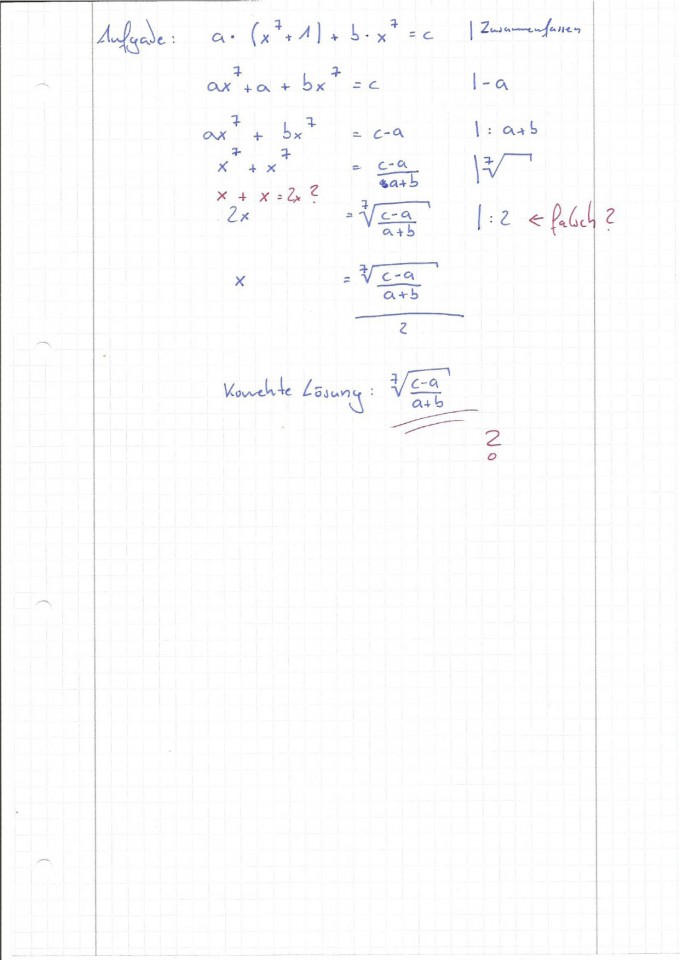 Aufgabe: a · (x⁷ + 1) + b · x⁷ = c | Zusammenfassen
ax⁷ + a + bx⁷ = c | - a
ax⁷ + bx⁷ = c - a | : a+b
x⁷ + x⁷ = (c-a)/(a+b) | ⁷√
x + x = 2x ?
2x = ⁷√((c-a)/(a+b)) | : 2 ← falsch ?
x = ⁷√((c-a)/(a+b)) / 2
Korrekte Lösung: ⁷√((c-a)/(a+b))
?